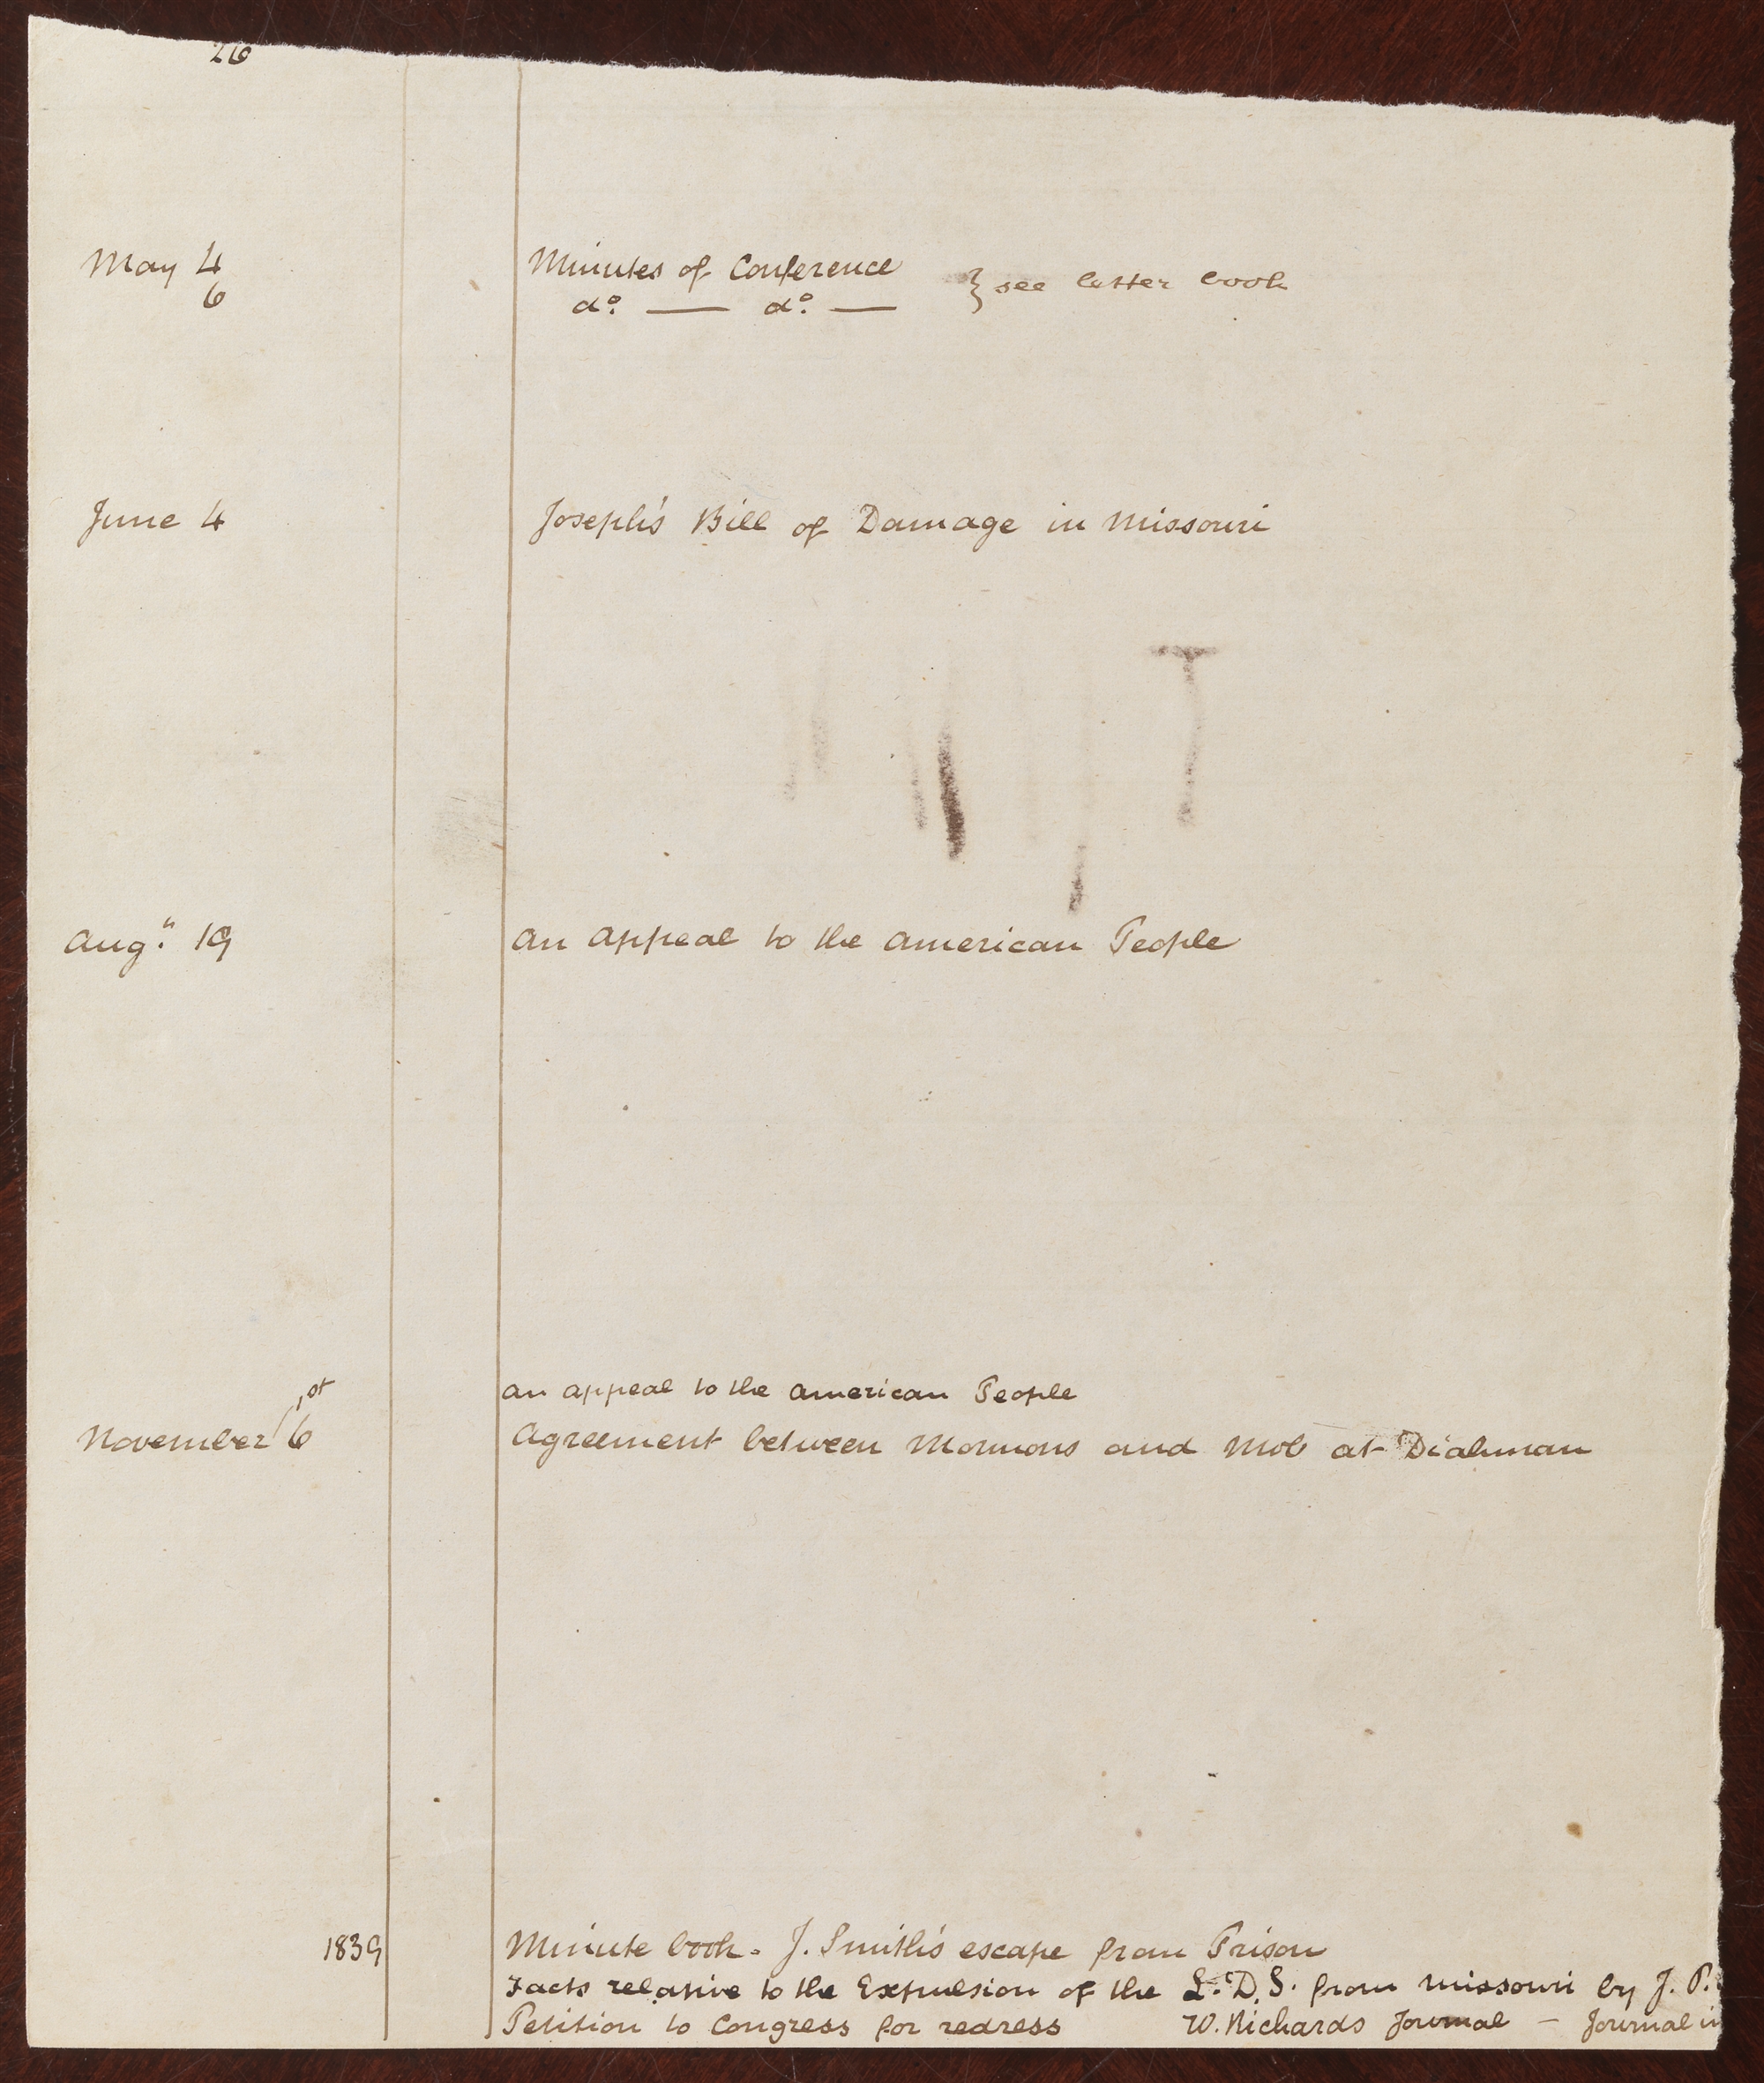 26
May 4 Minutes of Conference } see letter book
6 do. — do. —
June 4 Joseph's Bill of Damage in Missouri
Aug." 19 An Appeal to the American People
1st an appeal to the American People
November 6 Agreement between Mormons and Mob at Diahman
1839 Minute book. J. Smith's escape from Prison
Facts relative to the Expulsion of the L. D. S. from Missouri by J. P.
Petition to Congress for redress W. Richards Journal — Journal in